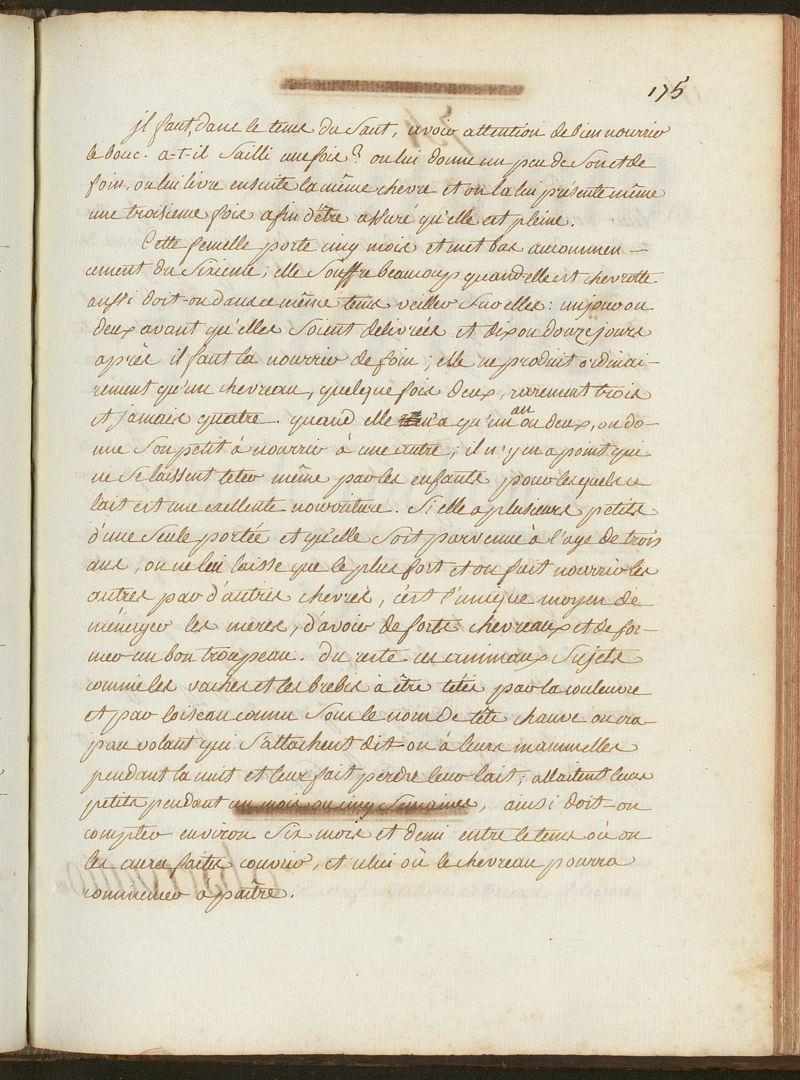 175
jl faut, dans le tems du Saut, avoir attention de bien nourrir
le bouc. a-t-il Sailli une fois? on lui donne un peu de Son et de
foin. on lui livre ensuite la même chevre et on la lui présente même
une troisieme fois afin d'être assuré qu'elle est pleine.
Cette femelle porte cinq mois et met bas au commen-
cement du Sixieme; elle Souffre beaucoup quand elle est chevrotte
aussi doit-on dans ce même tems veiller Sur elles: un jour ou
deux avant qu'elles Soient delivrées et dix ou douze jours
après il faut la nourrir de foin; elle ne produit ordinai-
rement qu'un chevreau, quelque fois deux, rarement trois
et jamais quatre. quand elle n'a qu'un an ou deux, on do-
nne Son petit à nourrir à une autre; il n'y en a point qui
ne Se laissent teter même par les enfants pour lesquels ce
lait est une exellente nourriture. Si elle a plusieurs petits
d'une Seule portée et qu'elle Soit parvenue à l'age de trois
ans, on ne lui laisse que le plus fort et on fait nourrir les
autres par d'autres chevres, c'est l'unique moyen de
ménerger les meres, d'avoir de forts chevreaux et de for-
mer un bon troupeau. Du reste ces animaux Sujets
comme les vaches et les brebis à être tétés par la couleuvre
et par loiseau connu Sous le nom de tête chauve ou cra-
pau volant qui S'attachent dit-on à leurs mammelles
pendant la nuit et leur fait perdre leur lait; allaitent leurs
petits pendant un mois ou cinq Semaines, ainsi doit-on
compter environ Six mois et demi entre le tems où on
les aura faites couvrir, et celui où le chevreau pourra
commencer a paître.